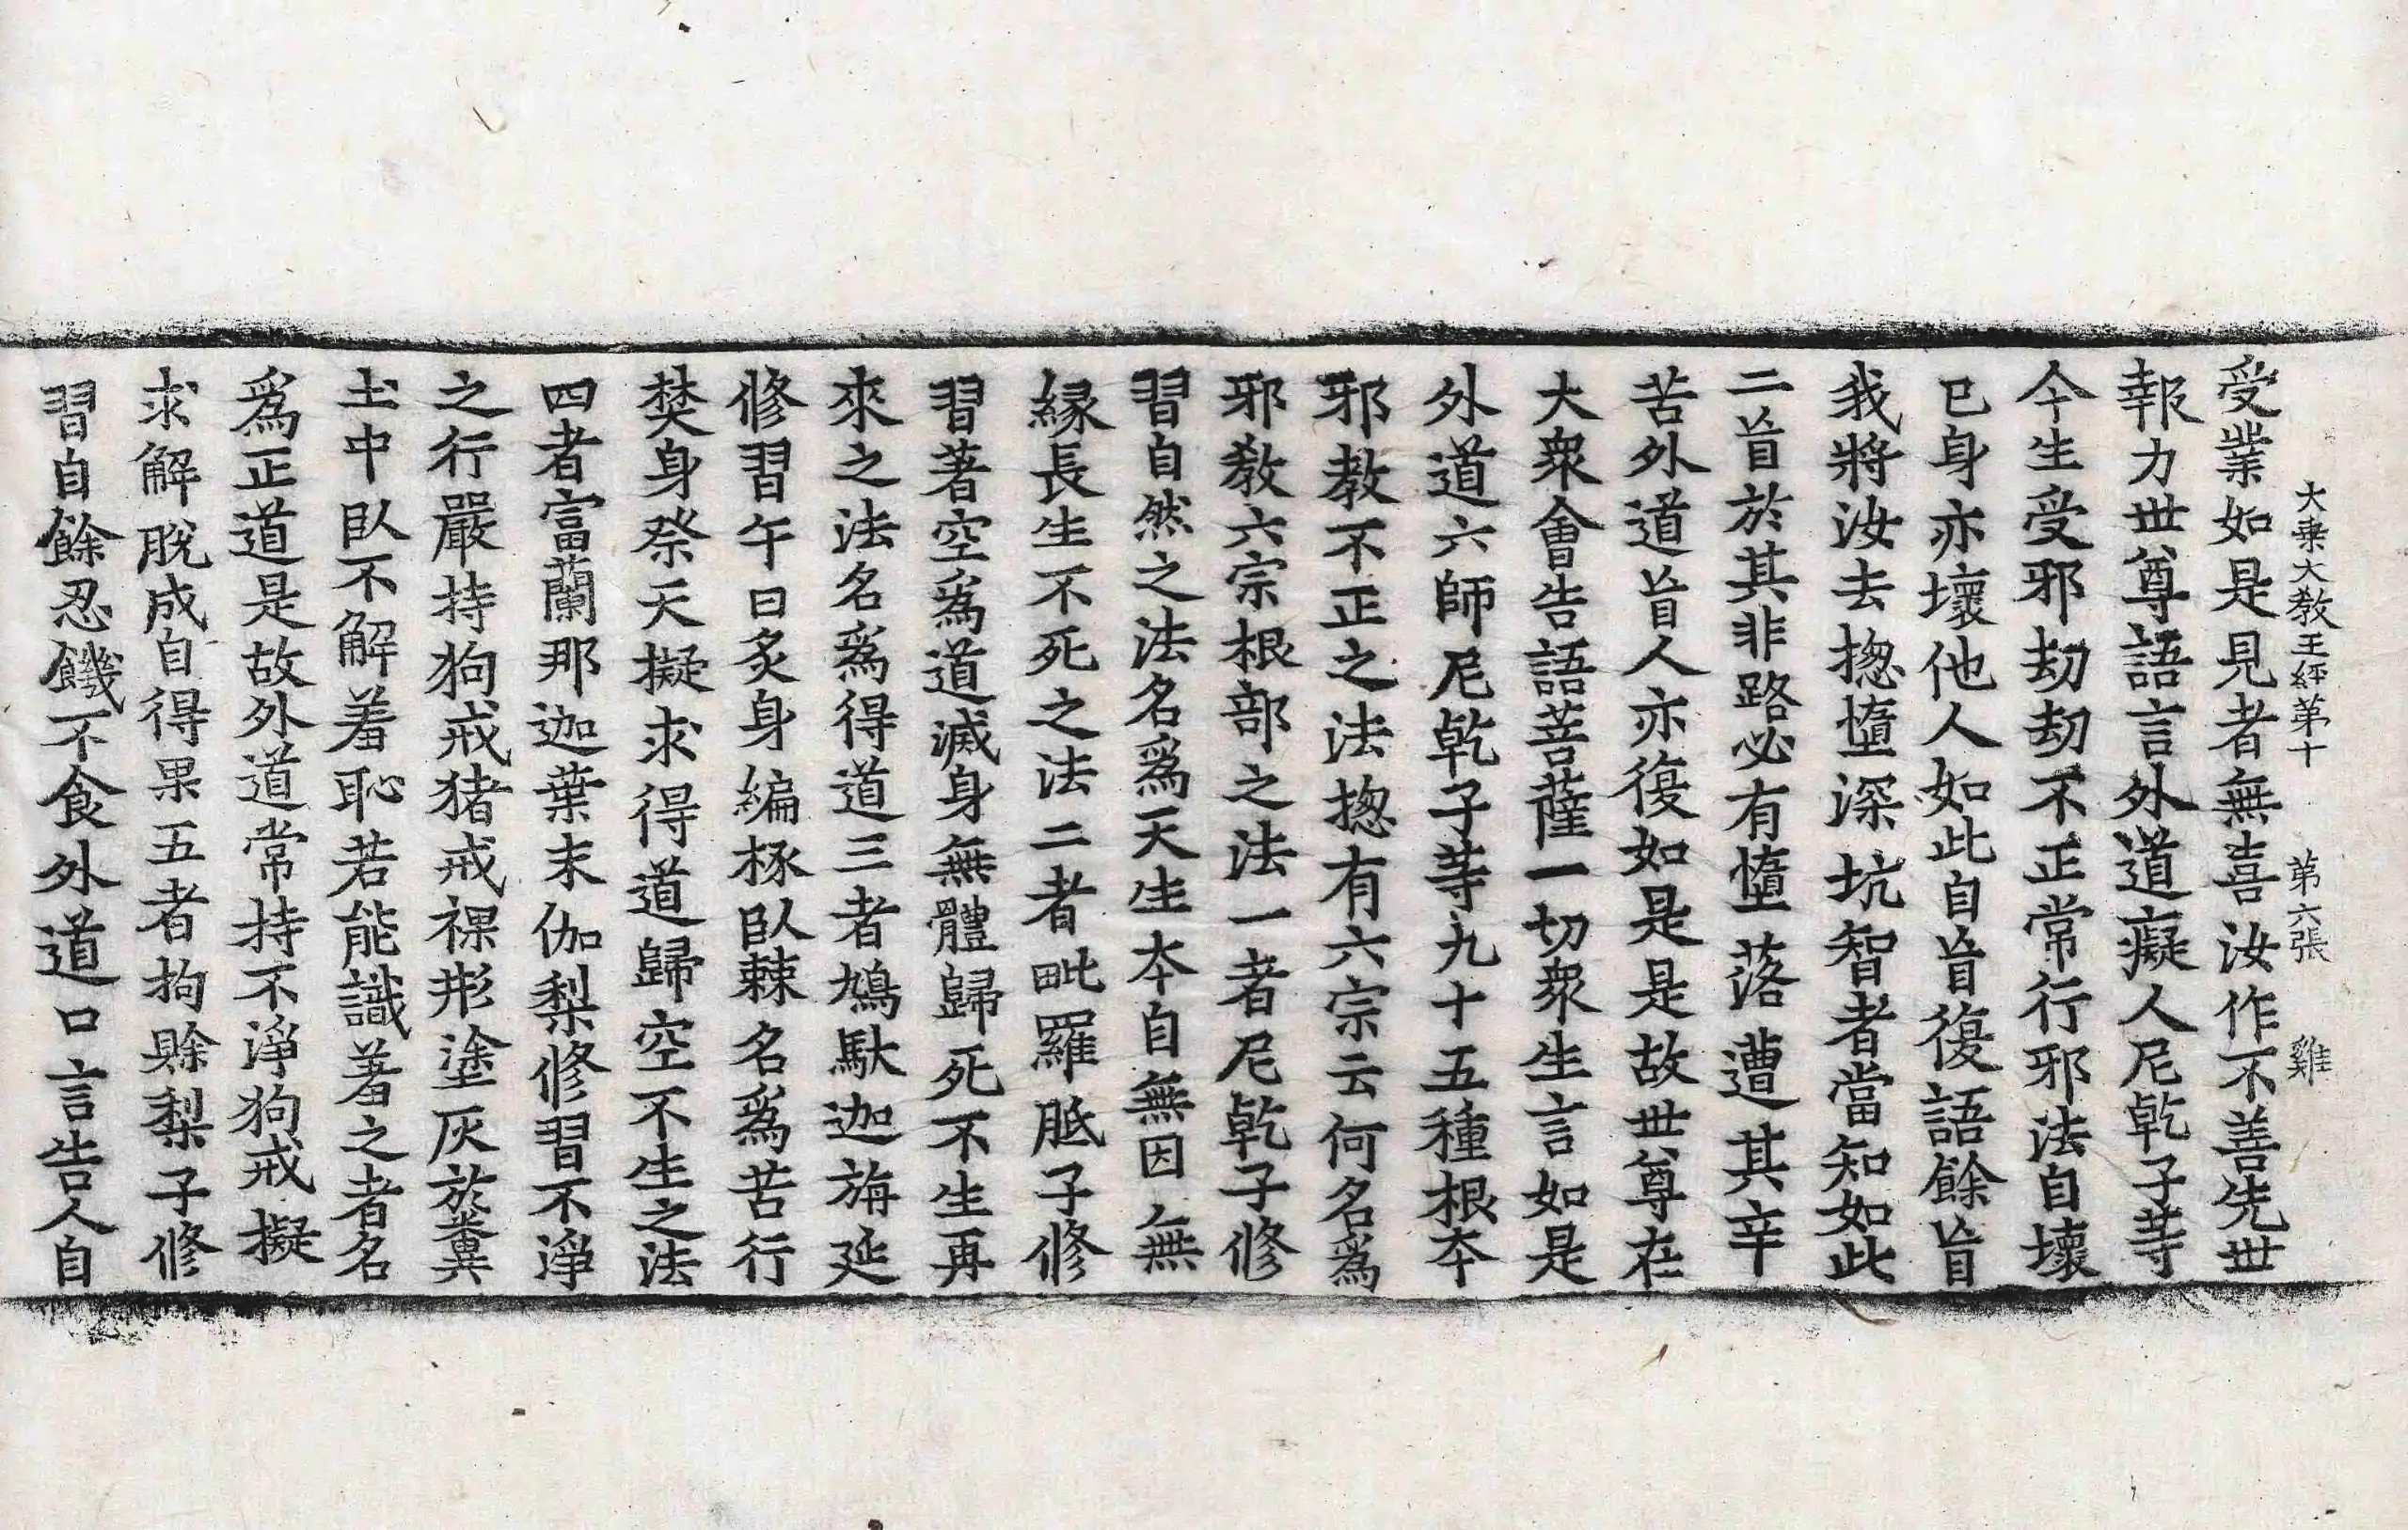 大乗大教王経第十　第六張　雞
受業如是見者無喜汝作不善先世
報力世尊語言外道癡人尼乹子䓁
今生受邪劫劫不正常行邪法自壞
已身亦壞他人如此自盲復語餘盲
我將汝去揔墮深坑智者當知如此
二盲於其非路必有墮落遭其辛
苦外道盲人亦復如是是故世尊在
大衆會告語菩薩一切衆生言如是
外道六師尼乹子䓁九十五種根夲
邪教不正之法揔有六宗云何名爲
邪教六宗根部之法一者尼乹子修
習自然之法名爲天生夲自無因無
縁長生不死之法二者毗羅胝子修
習著空爲道滅身無體歸死不生再
來之法名爲得道三者鳩馱迦旃延
修習午日炙身編椓卧棘名爲苦行
焚身祭天擬求得道歸空不生之法
四者富蘭那迦葉末伽梨修習不淨
之行嚴持狗戒猪戒裸形塗灰於糞
土中卧不解羞恥若能識羞之者名
爲正道是故外道常持不淨狗戒擬
求解脫成自得果五者拘賖梨子修
習自餘忍饑不食外道口言告人自